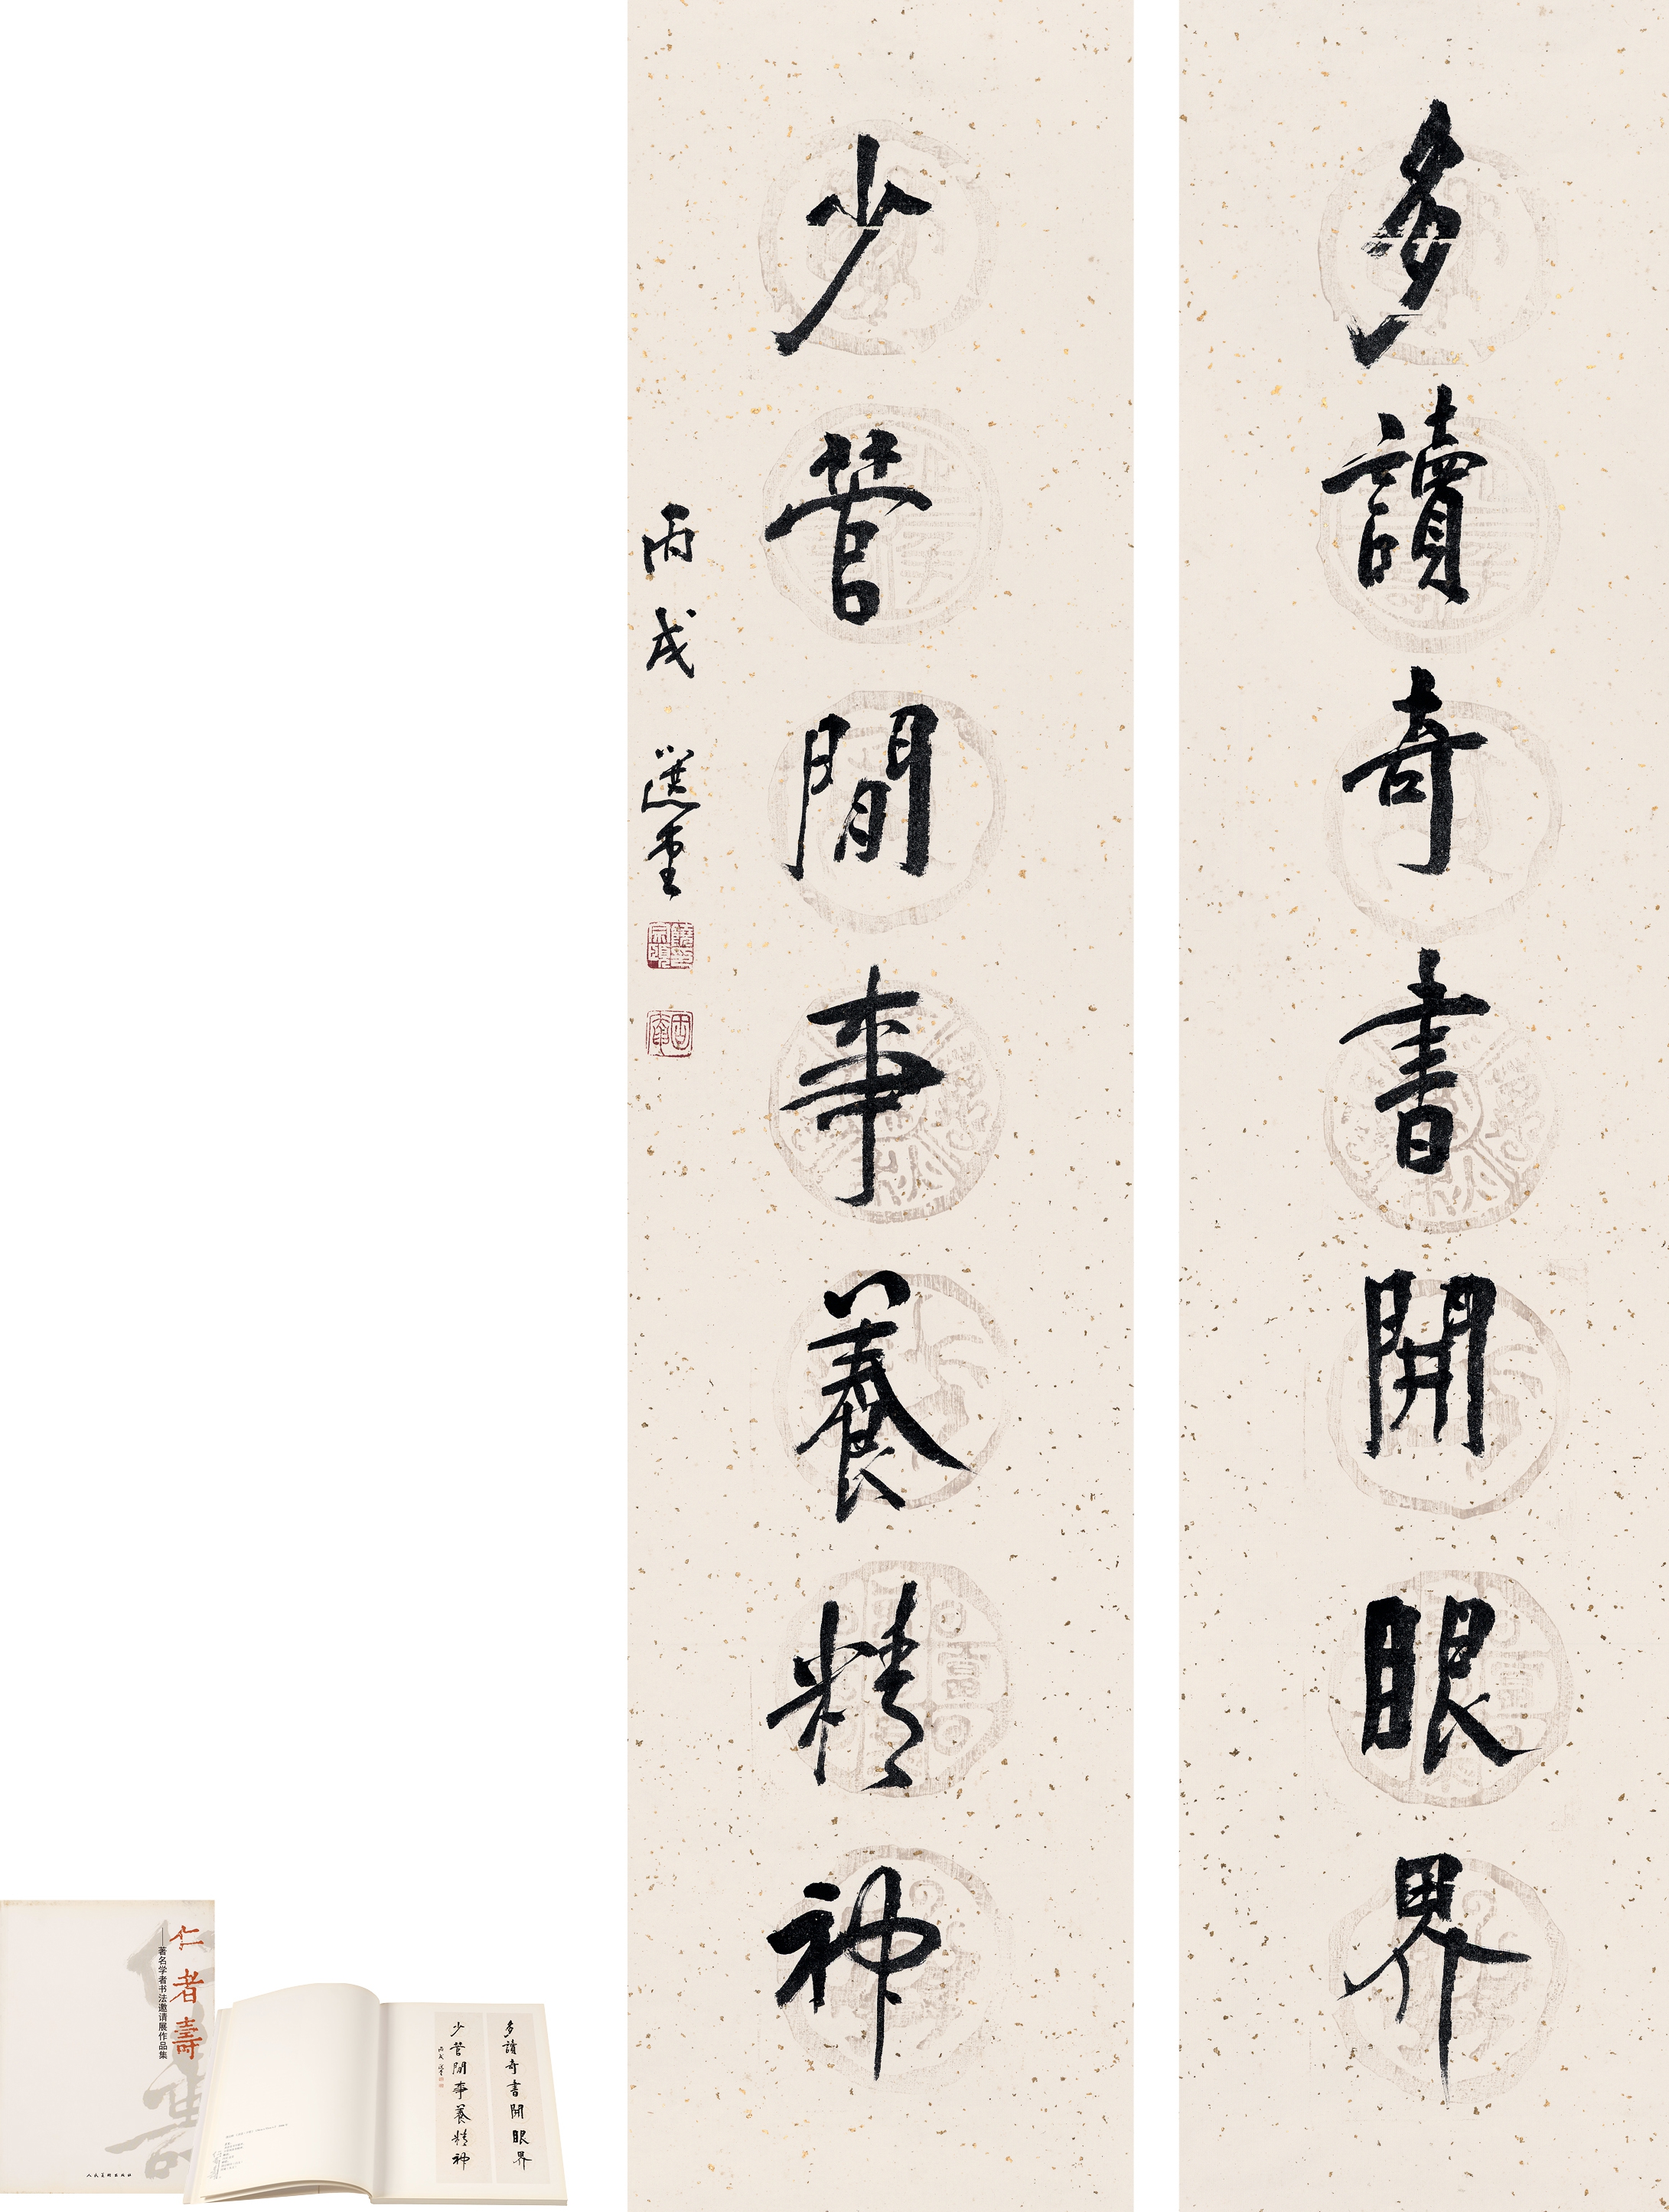 多讀奇書開眼界
少管閒事養精神
丙戌 選堂
饒宗頤印
仁者壽
——著名学者书法邀请展作品集
人民美術出版社
多讀奇書開眼界
少管閒事養精神
丙戌 選堂